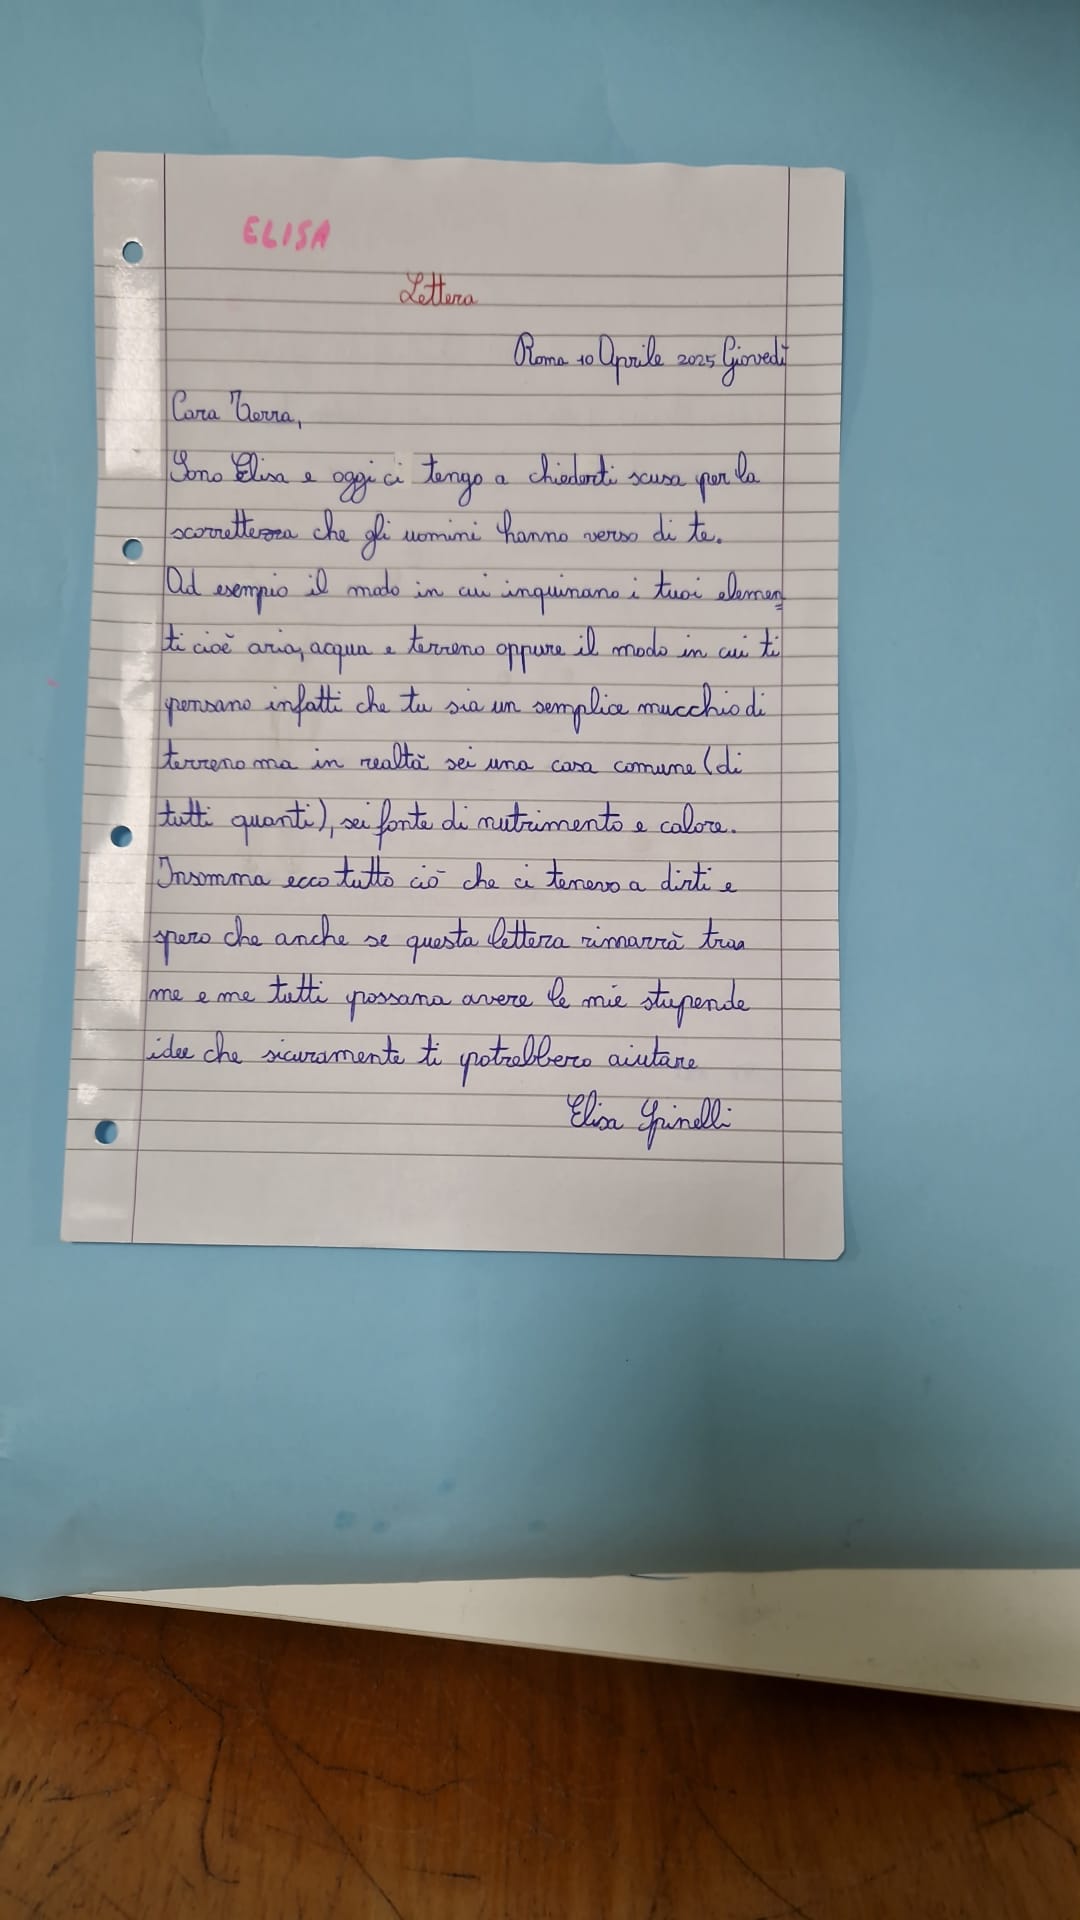 ELISA
Lettera
Roma 10 Aprile 2025 Giovedì
Cara Terra,
Sono Elisa e oggi ci tengo a chiederti scusa per la
scorrettezza che gli uomini hanno verso di te.
Ad esempio il modo in cui inquinano i tuoi elemen
ti cioè aria, acqua e terreno oppure il modo in cui ti
pensano infatti che tu sia un semplice mucchio di
terreno ma in realtà sei una casa comune (di
tutti quanti), sei fonte di nutrimento e calore.
Insomma ecco tutto ciò che ci tenevo a dirti e
spero che anche se questa lettera rimarrà traa
me e me tutti possana avere le mie stupende
idee che sicuramente ti potrebbero aiutare
Elisa Spinelli